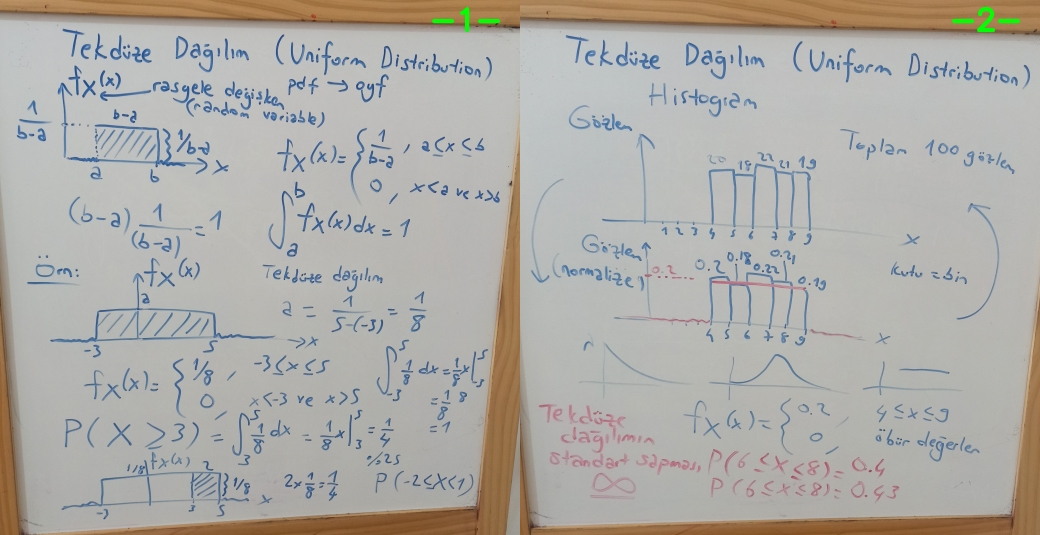 -1-
Tekdüze Dağılım (Uniform Distribution)
fx(x) ← rasgele değişken pdf → oyf
(random variable)
1/(b-a)
b-a
}1/b-a
a b x
fx(x) = { 1/(b-a) , a ≤ x ≤ b
0 , x<a ve x>b
(b-a) 1/(b-a) = 1
∫_a^b fx(x) dx = 1
Örn: fx(x) Tekdüze dağılım
a
-3 5 → x
a = 1/(5-(-3)) = 1/8
fx(x) = { 1/8 , -3 ≤ x ≤ 5
0 , x<-3 ve x>5
∫_{-3}^5 1/8 dx = 1/8 x |_{-3}^5
= 1/8 8
= 1
P(X ≥ 3) = ∫_3^5 1/8 dx = 1/8 x |_3^5 = 1/4
%25
1/8 fx(x) 2
}1/8
-3 3 5 x
2x 1/8 = 1/4 P(-2≤X<1)
-2-
Tekdüze Dağılım (Uniform Distribution)
Histogram
Gözlem
Toplam 100 gözlem
20 18 22 21 19
1 2 3 4 5 6 7 8 9 x
Gözlem
(normalize)
0.2
0.2 0.18 0.22 0.21 0.19
kutu = bin
4 5 6 7 8 9 x
fx(x) = { 0.2 , 4 ≤ x ≤ 9
0 , öbür değerler
Tekdüze
dağılımın
standart sapması
∞
P(6 ≤ X ≤ 8) = 0.4
P(6 ≤ X ≤ 8) = 0.43